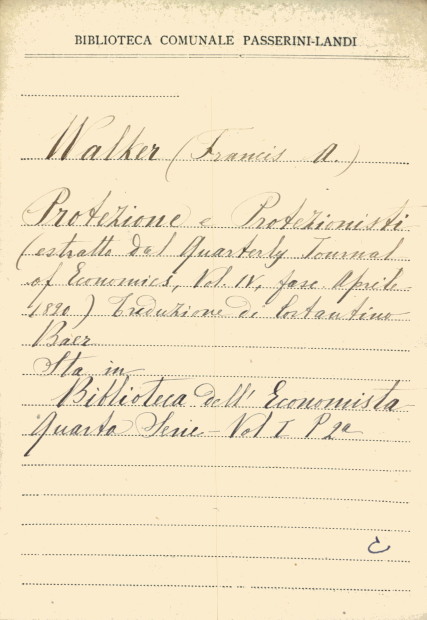 BIBLIOTECA COMUNALE PASSERINI-LANDI
Walker (Francis A.)
Protezione e Protezionisti
(estratto dal Quarterly Journal
of Economics, Vol. IV, fasc. Aprile
1890) Traduzione di Costantino
Baer
Sta in
Biblioteca dell' Economista
Quarta Serie - Vol I P 2a